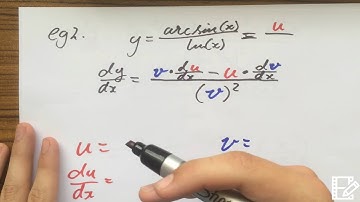 eg2. y = arcsin(x) / ln(x) = u /
dy/dx = (v · du/dx − u · dv/dx) / (v)²
u = v =
du/dx =